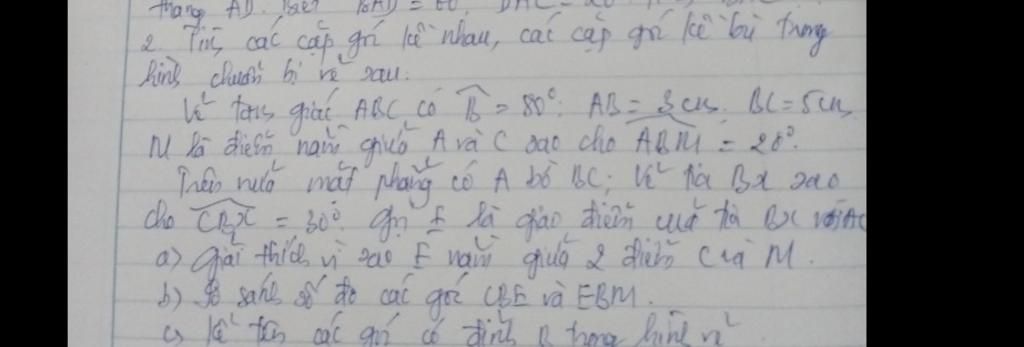 thẳng AD. Biết BAD = 60°, DAC = 20°
2. Tìm các cặp góc kề nhau, các cặp góc kề bù trong
hình chuẩn bị vẽ sau:
Vẽ tam giác ABC có B = 80°. AB = 3 cm. BC = 5cm
M là điểm nằm giữa A và C sao cho ABM = 20°.
Trên nửa mặt phẳng có A bờ BC, vẽ tia Bx sao
cho CBx = 30°. Gọi E là giao điểm của tia Bx với AC
a) Giải thích vì sao E nằm giữa 2 điểm C và M.
b) So sánh số đo các góc CBE và EBM.
c) Kể tên các góc có đỉnh B trong hình vẽ